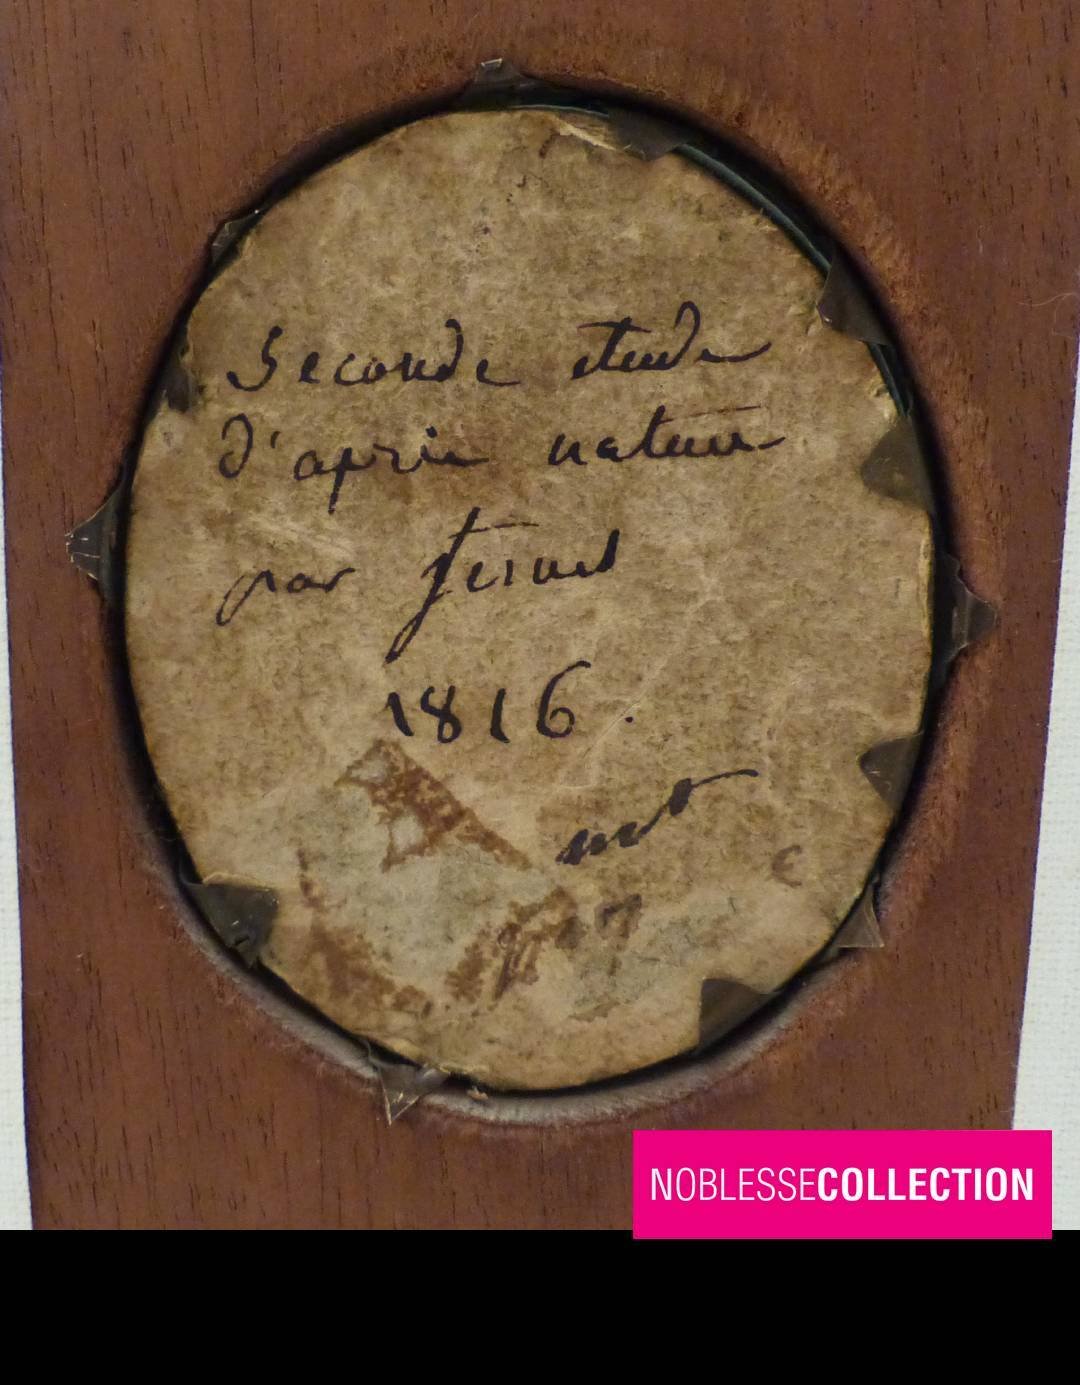 Seconde etude
d'après nature
par
1816.
NOBLESSECOLLECTION